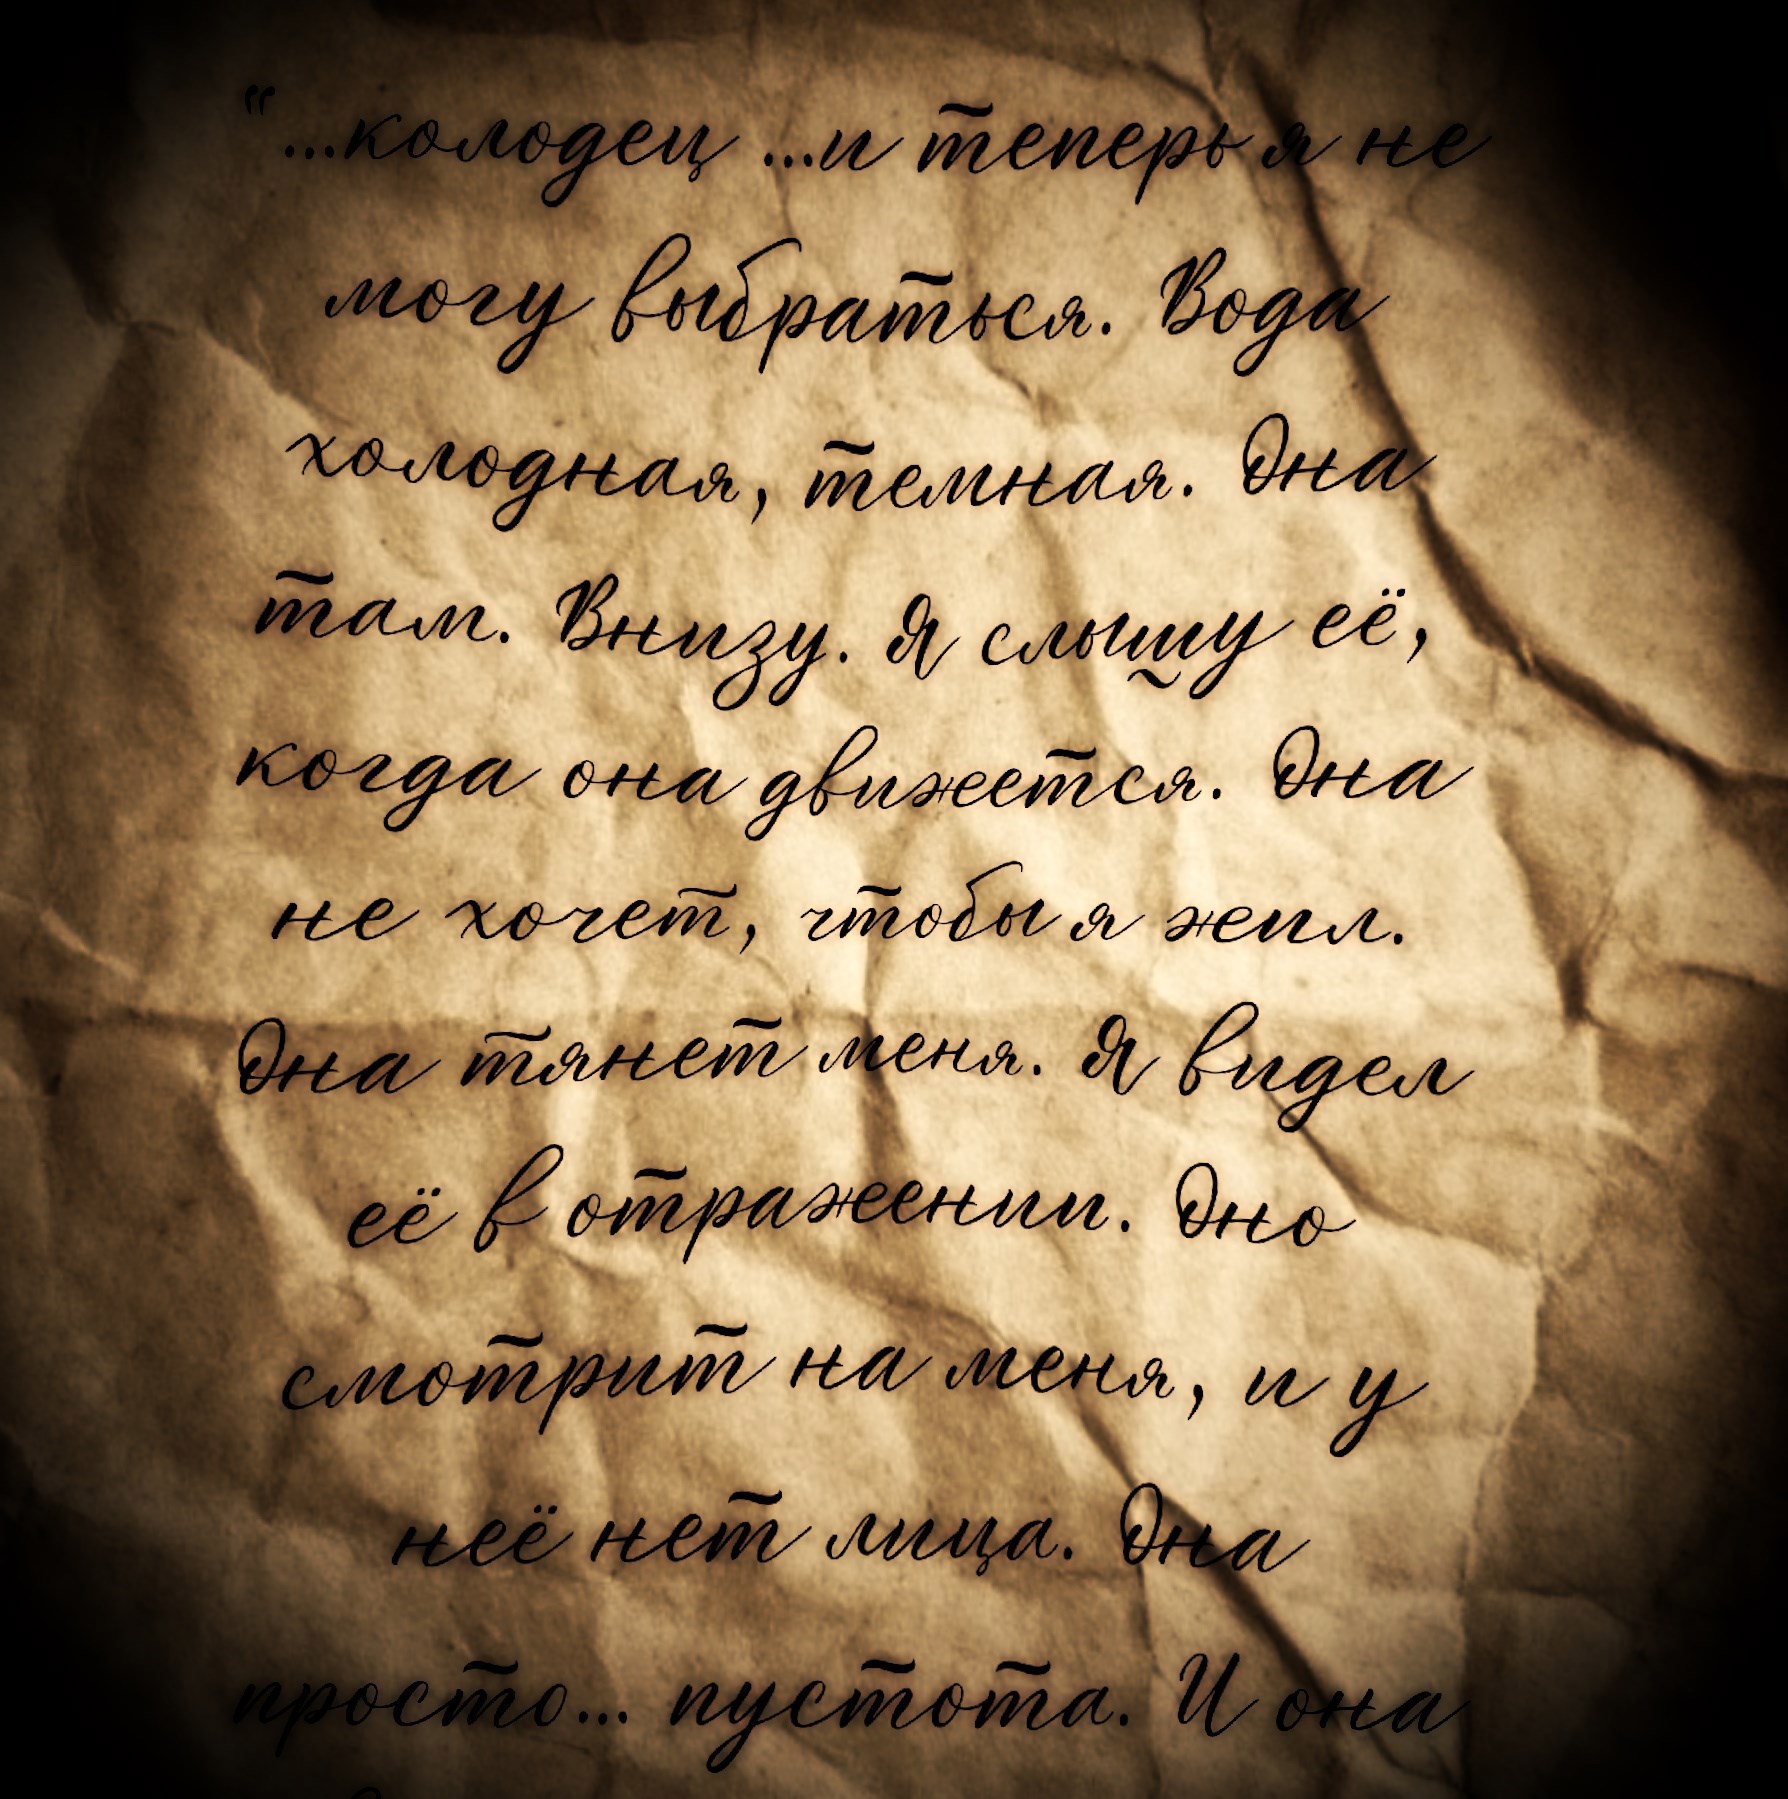 “...колодец ...и теперь я не
могу выбраться. Вода
холодная, темная. Она
там. Внизу. Я слышу её,
когда она движется. Она
не хочет, чтобы я жил.
Она тянет меня. Я видел
её в отражении. Оно
смотрит на меня, и у
неё нет лица. Она
просто... пустота. И она